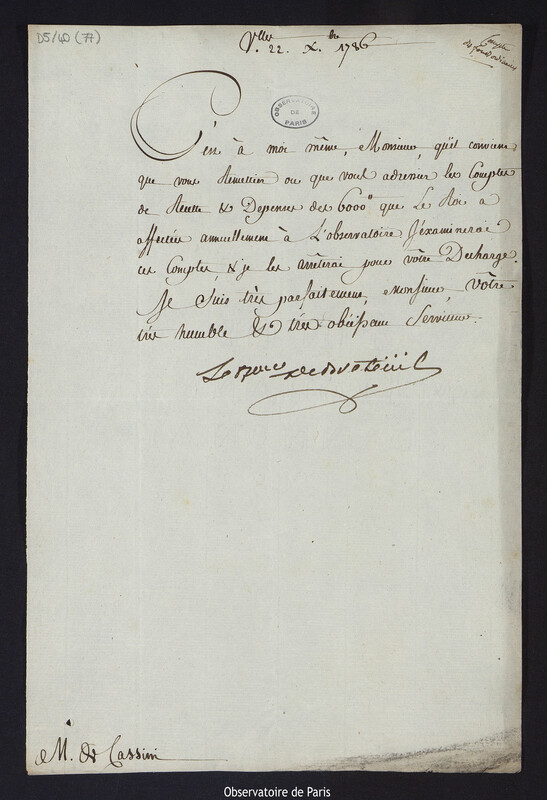 D5/40 (77)
V.lles 22. X.bre 1786
Compte
de fonds
OBSERVATOIRE
DE
PARIS
C'est à moi même, Monsieur, qu'il convient
que vous Remettiez ou que vous adressiez les Comptes
de Recette & Depenses des 6000.lt que Le Roi a
affectées annuellement à L'observatoire J'examinerai
ces Comptes, & je les arrêterai pour vôtre Decharge.
Je suis très parfaitement, Monsieur, vôtre
très humble & très obéissant Serviteur.
Le B.on de Breteüil
M. de Cassini
Observatoire de Paris